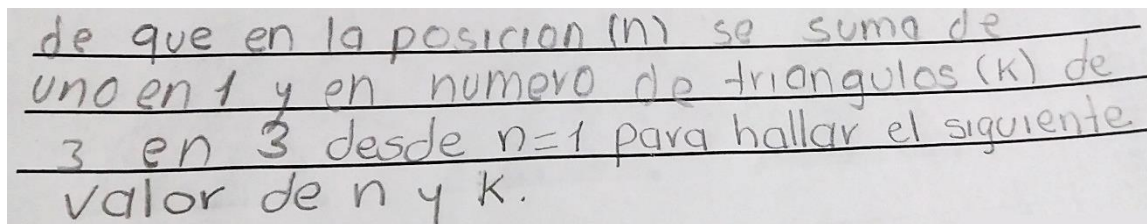 de que en la posicion (n) se suma de
uno en 1 y en numero de triangulos (K) de
3 en 3 desde n=1 para hallar el siguiente
valor de n y K.